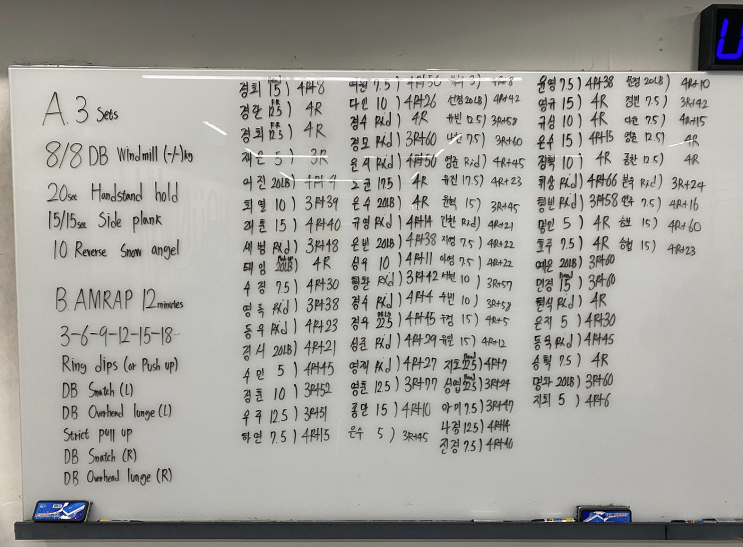 A. 3 Sets
8/8 DB Windmill (-/-)kg
20sec Handstand hold
15/15sec Side plank
10 Reverse Snow angel
B. AMRAP 12 minutes
3-6-9-12-15-18-
Ring dips (or Push up)
DB Snatch (L)
DB Overhead lunge (L)
Strict pull up
DB Snatch (R)
DB Overhead lunge (R)
경희 15) 4R+8
경란 12.5) 4R
경희 12.5) 4R
재은 5) 3R
여진 20LB)
희열 10) 3R+39
15) 4R+40
세범 Rxd) 3R+48
태임 20LB) 4R
수경 7.5) 4R+30
영독 Rxd) 3R+38
동우 Rxd) 4R+23
경서 20LB) 4R+21
수민 5) 4R+45
경훈 10) 3R+52
우주 12.5) 3R+51
타연 7.5) 4R+15
7.5) 4R+50
다인 10) 4R+26
경수 Rxd) 4R
경모 Rxd) 3R+60
윤석 Rxd) 4R+50
노균 17.5) 4R
은수 20LB) 4R
규영 Rxd) 4R+14
은빈 20LB) 4R+38
심우 10) 4R+11
형관 Rxd) 3R+42
경수 Rxd) 4R+4
경욱 22.5) 4R+45
심준 Rxd) 4R+29
영재 Rxd) 4R+27
영훈 12.5) 3R+77
종만 15) 4R+10
은수 5) 3R+45
선경 20LB) 4R+42
유빈 12.5) 3R+58
나현 7.5) 3R+60
영준 Rxd) 4R+45
유진 17.5) 4R+23
윤혁 15) 3R+45
민찬 Rxd) 4R+21
지영 7.5) 4R+22
아영 7.5) 4R+22
서빈 10) 3R+57
수빈 10) 3R+58
15) 4R+5
유민 15) 4R+12
지호 22.5) 4R+7
상엽 22.5) 3R+24
아미 7.5) 3R+47
나경 12.5) 4R+14
진경 7.5) 4R+40
윤영 7.5) 4R+38
영규 15) 4R
규성 10) 4R
은우 15) 4R+15
정혁 10) 4R
휘상 Rxd) 4R+66
형빈 Rxd) 3R+58
명인 5) 4R
효주 7.5) 4R
예은 20LB) 3R+60
민경 15) 3R+60
현식 Rxd) 4R
은지 5) 4R+30
동욱 Rxd) 4R+45
승혁 7.5) 4R
명화 20LB) 3R+60
지희 5) 4R+6
20LB) 4R+10
정빈 7.5) 3R+42
다현 7.5) 4R+15
영훈 12.5) 4R
종찬 12.5) 4R
본우 Rxd) 3R+24
7.5) 4R+16
15) 4R+60
15) 4R+23